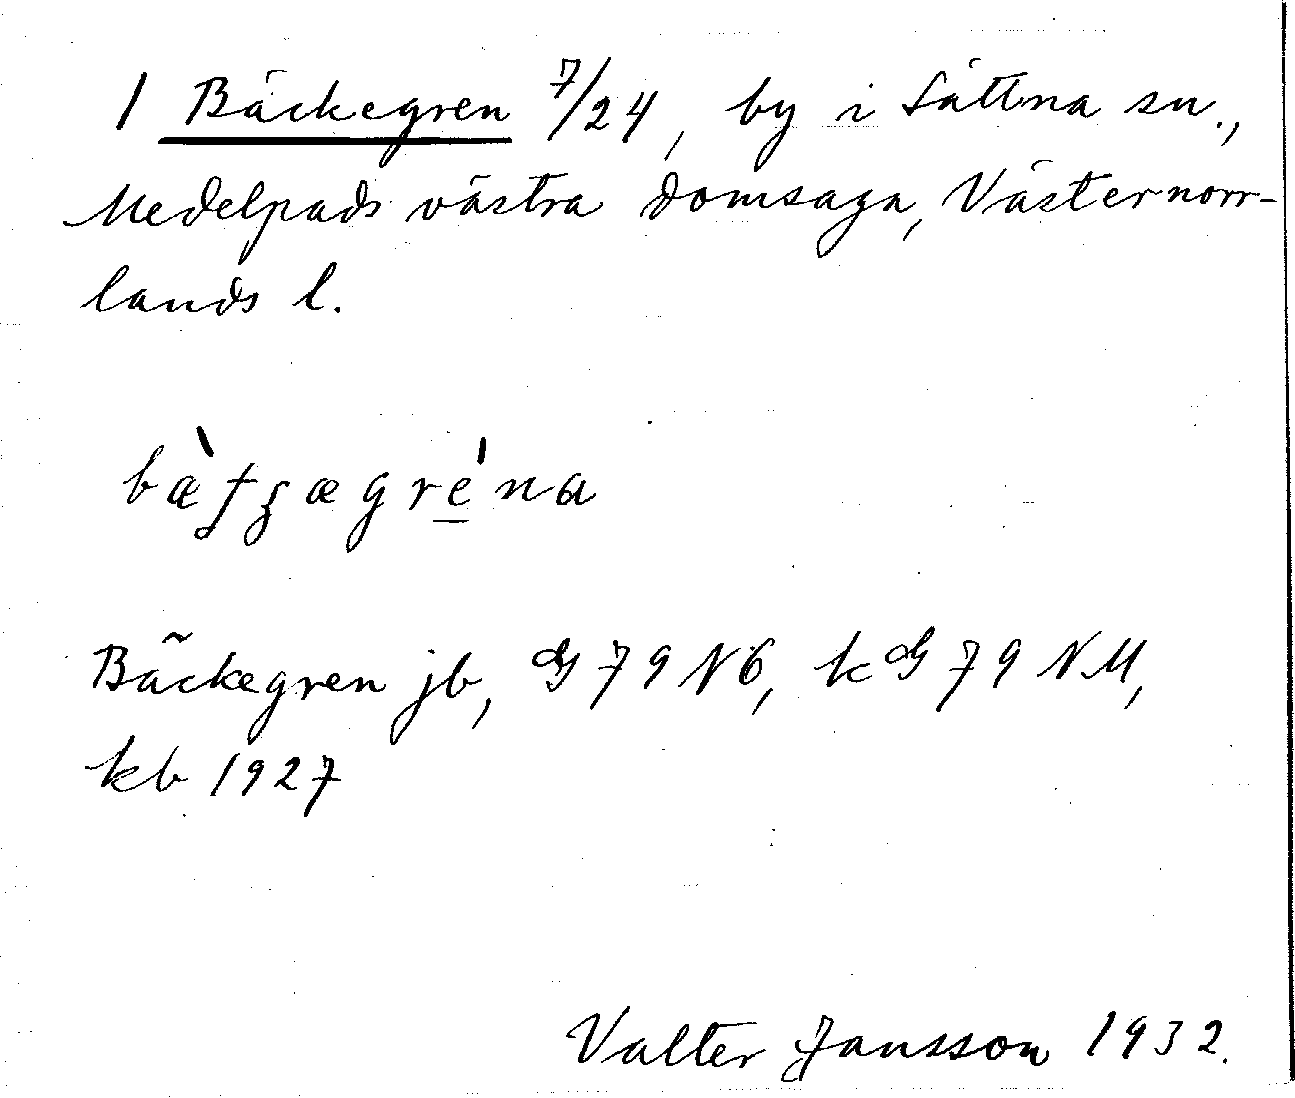 1 Bäckegren 7/24, by i Sättna sn.,
Medelpads västra domsaga, Västernorr-
lands l.
bæ̀ʈʂægre̠̍na
Bäckegren jb, G 79 NÖ, kG 79 NM,
kb 1927
Valter Jansson 1932.